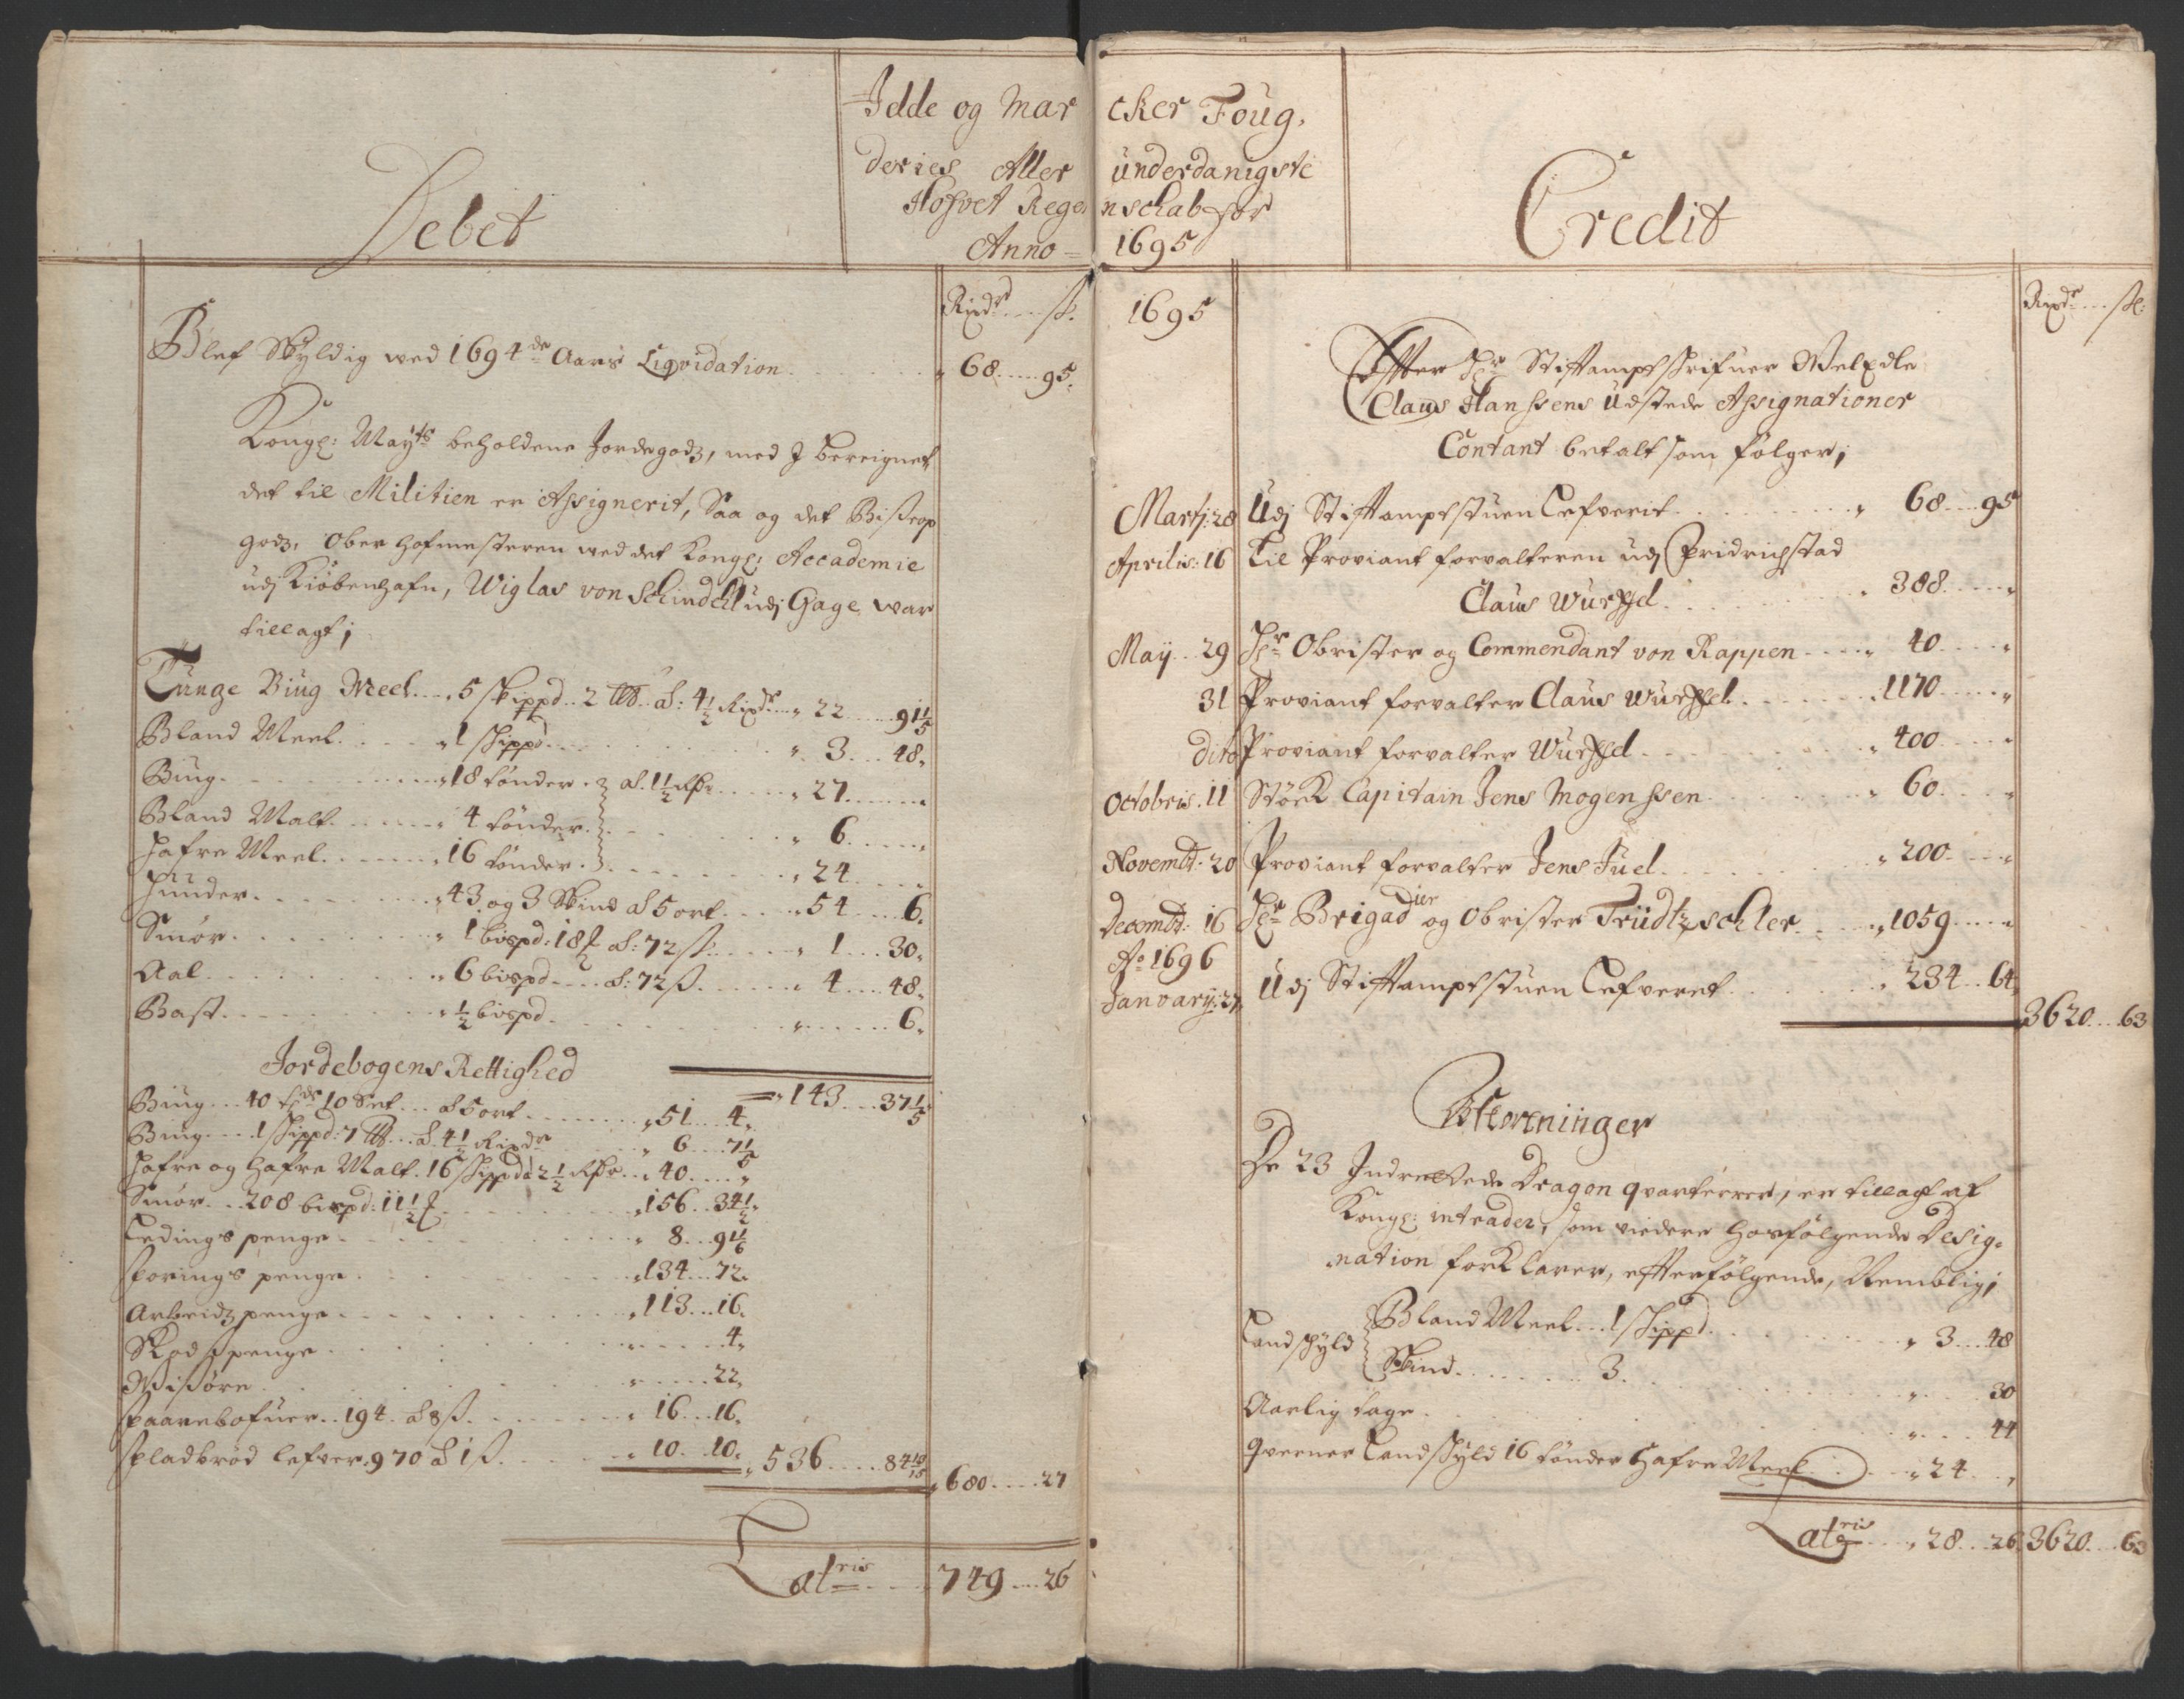 Idde og Marcker Foug,
deries Aller underdanigste
Hofvet Regenschab for
Anno = 1695
Debet
Rixdr ... ß.
Blef Skyldig wed 1694de Aars Liqvidation . . . 68 ... 95.
Kongl: Mayts beholdene Jordegodz, med J bereignet
det til Militien er Assignerit, Saa og det Bißcop
godz, Ober hofmesteren wed det Kongl: Accademie
udj Kiøbenhafn, Wiglas von Schindel udj Gage war
tillagt;
Tunge Biug Meel ... 5 skippd .. 2 a: 4½ Rixdr ... 22 ... 91 1/5
Bland Meel . . . 1 skippd . . . 3 ... 48.
Biug . . . 18 tønder . a. 1½ Rdr . . . 27 ...
Bland Malt . . . 4 tønder . . . 6 ...
Hafre Meel . . . 16 tønder . . . 24 ...
Huuder . . . 43 og 3 Skind a 5 ort . . . 54 ... 6.
Smør . . . 1 bispd: 18 a: 72 ß . . . 1 ... 30.
Aal . . . 6 bispd ... a: 72 ß . . . 4 ... 48.
Bast . . . ½ bispd . . . 6.
143 ... 37 1/5
Jordebogens Rettighed
Biug ... 40 tdr 10 Set ... a 5 ort . . . 51 ... 4.
Biug ... 1 skippd: 7 ... a. 4½ Rixdr . . . 6 ... 7 1/5
Hafre og Hafre Malt . 16 skippd a 2½ Rdr . . . 40 ...
Smør .. 208 bispd: 11½ . . . 156 .. 34½
Ledings penge . . . 8 ... 91 1/6
Forings penge . . . 134 ... 72.
Arbeidz penge . . . 113 ... 16.
Skydspenge . . . 4.
Wisøre . . . 22.
Spaarebofuer .. 194 . a 8 ß . . . 16 ... 16.
Fladbrød lefver . 970 a 1 ß . . . 10 ... 10.
536 ... 84
680 ... 27
Latris . . . 749 ... 26
Credit
1695
Rixdr ... ß:
Effter Hr Stiftampt skrifuer WelEdle
Claus Hanssens Udstede Assignationer
Contant betalt som følger;
Martj: 28 Udj Stiftamptstuen Lefverit . . . 68 ... 95
Aprilis: 16 Til Proviant forvalteren udj Fridrichstad
Claus Wurtzel . . . 388 ...
May .. 29 Hr Obrister og Commendant von Rappen . . . 40 ...
31 Proviant forvalter Claus Wurtzel . . . 1170 ...
dito Proviant forvalter Wurtzel . . . 400 ...
Octobris . 11 Støck Capitain Jens Mogenssen . . . 60 ...
Novembr . 20 Proviant forvalter Jens Juel . . . 200 ...
Decembr: 16 Hr Brigadier og Obrister Trüdtzschler . . . 1059 ...
Ao 1696
Januarij: 27 Udj Stiftamptstuen Lefveret . . . 234 .. 64.
3620 ... 63
Afkortninger
De 23 Indrettede Dragon qvarteerer, er tillagt af
Kongl: intrader, som viedere hosfølgende Desig-
nation forklarer, effterfølgende, Nemblig;
Landskyld
Bland Meel ... 1 skippd . . . 3 ... 48
Skind . . . 3 . . . 30
Aarlig tage . . . 44
Qverner Landskyld 16 tønder Hafre Meel . . . 24 ...
Latris . . . 28 ... 26. 3620 ... 63